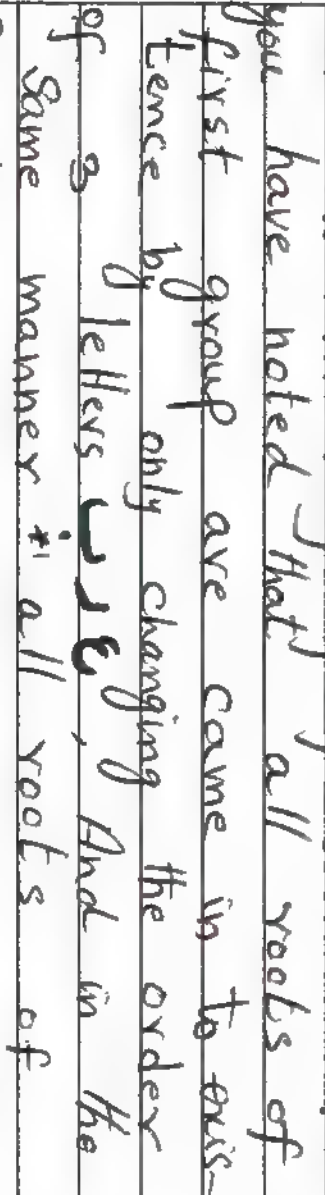 you have noted that all roots of
first group are came in to exis-
tence by only changing the order
of 3 letters ب ر ع, And in the
same manner *1 all roots of